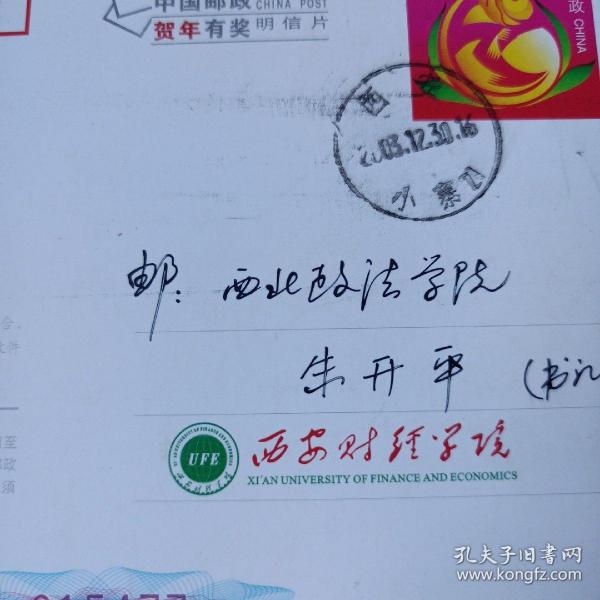 中国邮政 CHINA POST
贺年有奖明信片
政 CHINA
西安
2003.12.30.16
小寨
邮：西北政法学院
朱开平（书记
合，
文件
至
邮政
须
UFE
西安财经学院
XI'AN UNIVERSITY OF FINANCE AND ECONOMICS
孔夫子旧书网
www.kongfz.com